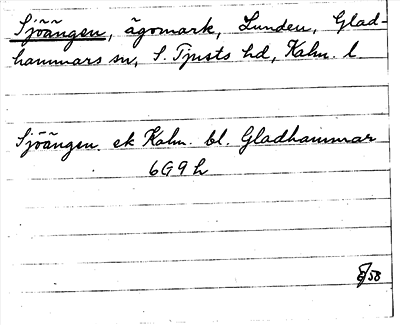 Sjöängen, ägomark, Lunden, Glad-
hammars sn, S. Tjusts hd, Kalm. l.
Sjöängen ek Kalm. bl. Gladhammar
6G9h
58